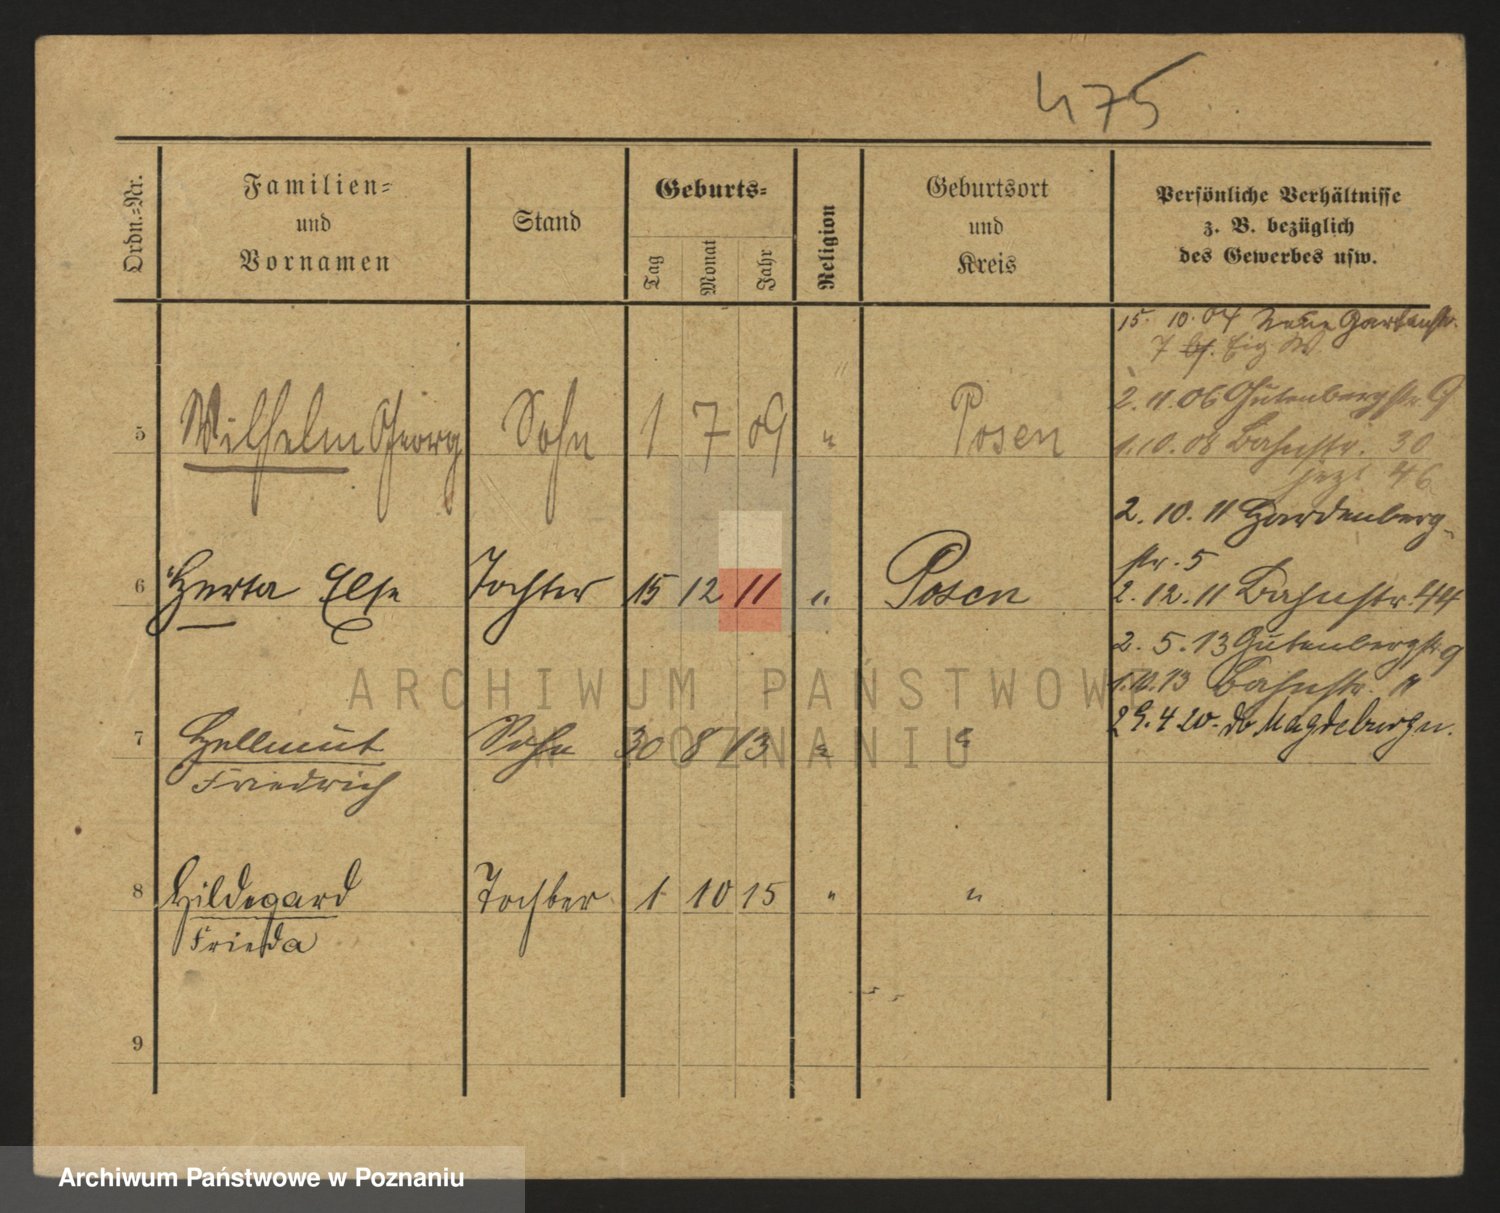 475
Ordn.=Nr.
Familien=
und
Vornamen
Stand
Geburts=
Tag
Monat
Jahr
Religion
Geburtsort
und
Kreis
Persönliche Verhältnisse
z. B. bezüglich
des Gewerbes usw.
15. 10. 04 Neue Gartenstr.
7
2. 11. 06 Gutenbergstr. 9
1. 10. 08 Bahnstr. 30
jezt 46
2. 10. 11 Hardenberg-
str. 5
2. 12. 11 Bahnstr. 44
2. 5. 13 Gutenbergstr. 9
1. 10. 13 Bahnstr. "
29. 4 20. Magdeburg
5 Wilhelm Georg Sohn 1 7 09 " Posen
6 Herta Else Tochter 15 12 11 " Posen
7 Hellmut Sohn 30 8 13 " "
Friedrich
8 Hildegard Tochter 1 10 15 " "
Frieda
9
ARCHIWUM PAŃSTWOWE
W POZNANIU
Archiwum Państwowe w Poznaniu